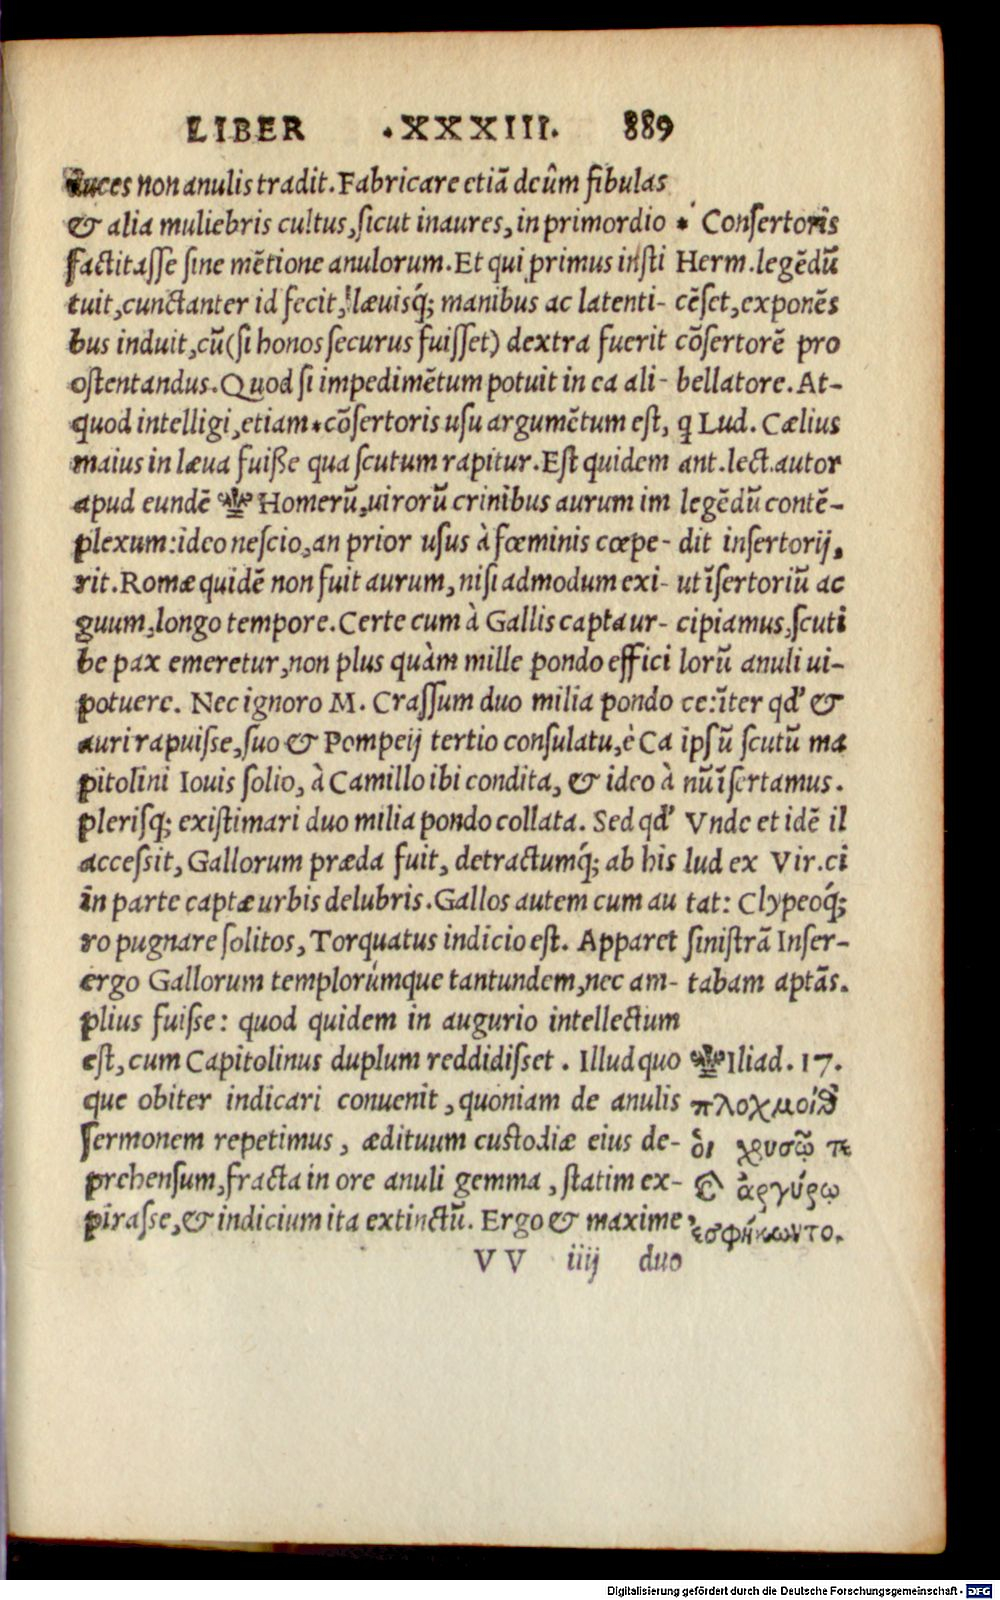 LIBER .XXXIII. 889
luces non anulis tradit. Fabricare etiā deûm fibulas
& alia muliebris cultus, sicut inaures, in primordio
factitasse sine mētione anulorum. Et qui primus insti
tuit, cunctanter id fecit, læuisq́; manibus ac latenti-
bus induit, cū (si honos securus fuisset) dextra fuerit
ostentandus. Quod si impedimētum potuit in ea ali-
quod intelligi, etiam * cōsertoris usu argumētum est,
maius in læua fuiße qua scutum rapitur. Est quidem
apud eundē ⚜ Homerū, uirorū crinibus aurum im
plexum: ideo nescio, an prior usus à fœminis cœpe-
rit. Romæ quidē non fuit aurum, nisi admodum exi-
guum, longo tempore. Certe cum à Gallis capta ur-
be pax emeretur, non plus quàm mille pondo effici
potuere. Nec ignoro M. Crassum duo milia pondo
auri rapuisse, suo & Pompeij tertio consulatu, è Ca
pitolini Iouis solio, à Camillo ibi condita, & ideo à
plerisq; existimari duo milia pondo collata. Sed qđ
accessit, Gallorum præda fuit, detractumq́; ab his
in parte captæ urbis delubris. Gallos autem cum au
ro pugnare solitos, Torquatus indicio est. Apparet
ergo Gallorum templorúmque tantundem, nec am-
plius fuisse: quod quidem in augurio intellectum
est, cum Capitolinus duplum reddidisset. Illud quo
que obiter indicari conuenit, quoniam de anulis
sermonem repetimus, ædituum custodiæ eius de-
prehensum, fracta in ore anuli gemma, statim ex-
pirasse, & indicium ita extinctū. Ergo & maxime
VV iiij duo
* Consertoris
Herm. legēdū
cēset, exponēs
cōsertorē pro
bellatore. At-
q Lud. Cælius
ant. lect. autor
legēdū contē-
dit insertorij,
ut īsertoriū ac
cipiamus, scuti
lorū anuli ui-
ce: īter qđ &
ipsū scutū ma
nū īsertamus.
Vnde et idē il
lud ex Vir. ci
tat: Clypeoq́;
sinistrā Inser-
tabam aptās.
⚜ Iliad. 17.
πλοχμοίθ᾽
ὁι χρυσῷ τε
ϗ ἀργύρῳ
ἐσφήκωντο.
Digitalisierung gefördert durch die Deutsche Forschungsgemeinschaft - DFG